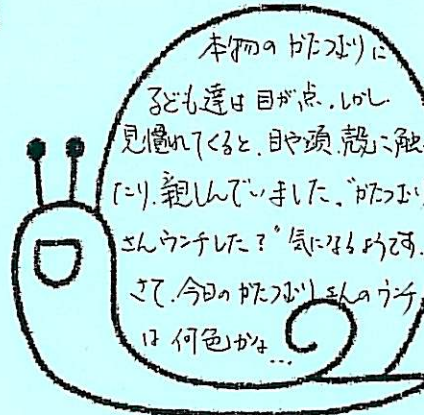 本物の かたつむりに
子ども達は 目が点。しかし
見慣れてくると、目や頭、殻に触
たり、親しんでいました。"かたつむり
さんウンチした?" 気になるようです。
さて、今日の かたつむりさんのウンチ
は 何色かな…